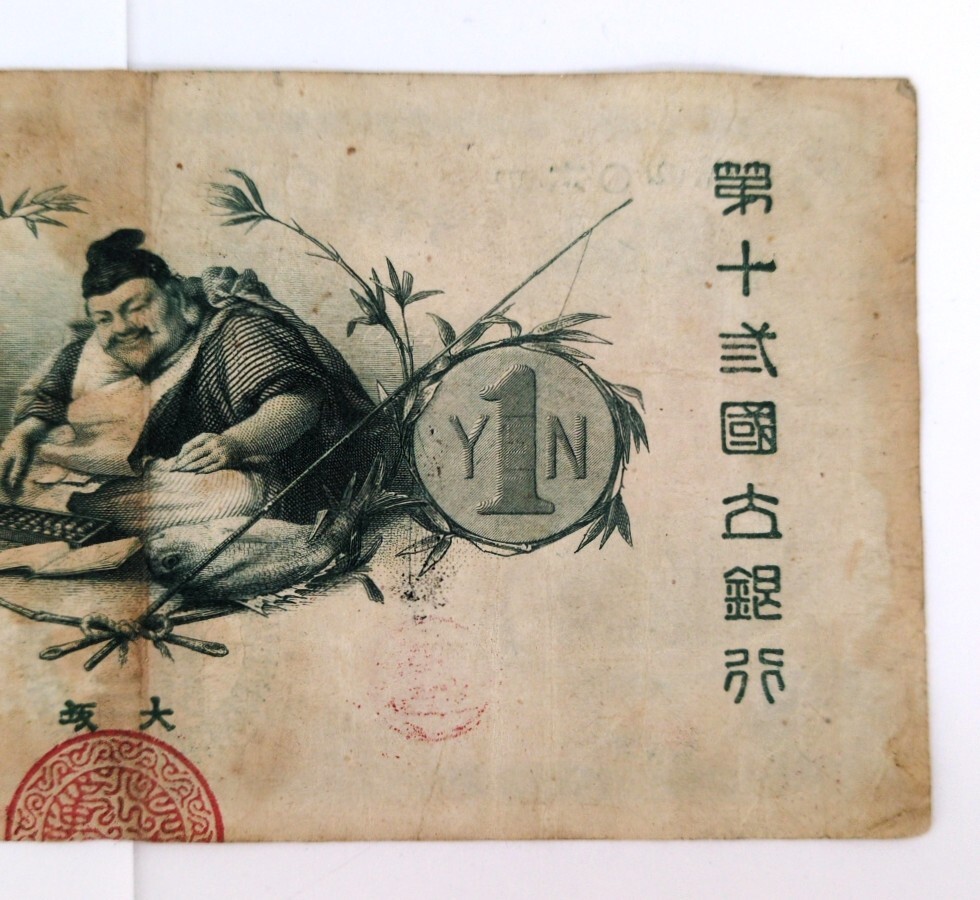 第十弎國立銀行
Y 1 N
大坂